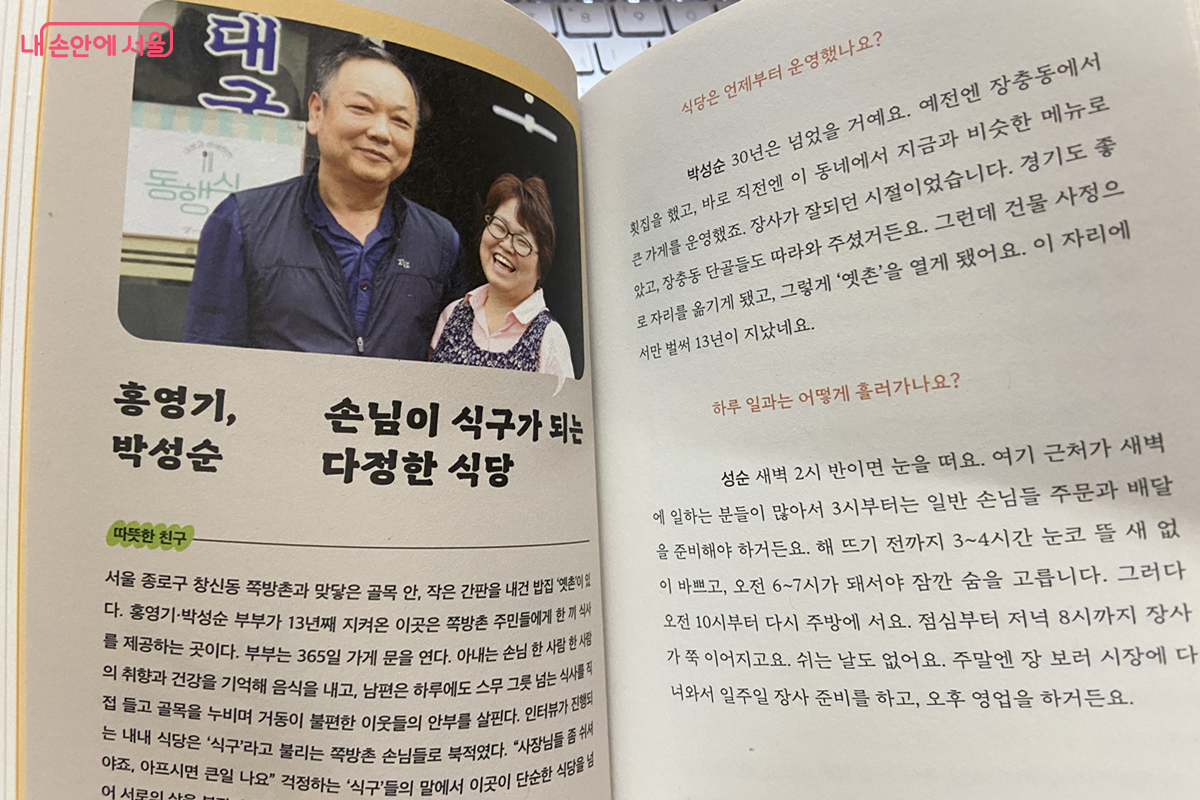 내 손안에 서울
대
구
동행식
홍영기,
박성순
손님이 식구가 되는
다정한 식당
따뜻한 친구
서울 종로구 창신동 쪽방촌과 맞닿은 골목 안, 작은 간판을 내건 밥집 ‘옛촌’이 있
다. 홍영기·박성순 부부가 13년째 지켜온 이곳은 쪽방촌 주민들에게 한 끼 식사
를 제공하는 곳이다. 부부는 365일 가게 문을 연다. 아내는 손님 한 사람 한 사람
의 취향과 건강을 기억해 음식을 내고, 남편은 하루에도 스무 그릇 넘는 식사를 직
접 들고 골목을 누비며 거동이 불편한 이웃들의 안부를 살핀다. 인터뷰가 진행되
는 내내 식당은 ‘식구’라고 불리는 쪽방촌 손님들로 북적였다. “사장님들 좀 쉬셔
야죠, 아프시면 큰일 나요” 걱정하는 ‘식구’들의 말에서 이곳이 단순한 식당을 넘
어 서로의 삶을
식당은 언제부터 운영했나요?
박성순 30년은 넘었을 거예요. 예전엔 장충동에서
횟집을 했고, 바로 직전엔 이 동네에서 지금과 비슷한 메뉴로
큰 가게를 운영했죠. 장사가 잘되던 시절이었습니다. 경기도 좋
았고, 장충동 단골들도 따라와 주셨거든요. 그런데 건물 사정으
로 자리를 옮기게 됐고, 그렇게 ‘옛촌’을 열게 됐어요. 이 자리에
서만 벌써 13년이 지났네요.
하루 일과는 어떻게 흘러가나요?
성순 새벽 2시 반이면 눈을 떠요. 여기 근처가 새벽
에 일하는 분들이 많아서 3시부터는 일반 손님들 주문과 배달
을 준비해야 하거든요. 해 뜨기 전까지 3~4시간 눈코 뜰 새 없
이 바쁘고, 오전 6~7시가 돼서야 잠깐 숨을 고릅니다. 그러다
오전 10시부터 다시 주방에 서요. 점심부터 저녁 8시까지 장사
가 쭉 이어지고요. 쉬는 날도 없어요. 주말엔 장 보러 시장에 다
녀와서 일주일 장사 준비를 하고, 오후 영업을 하거든요.